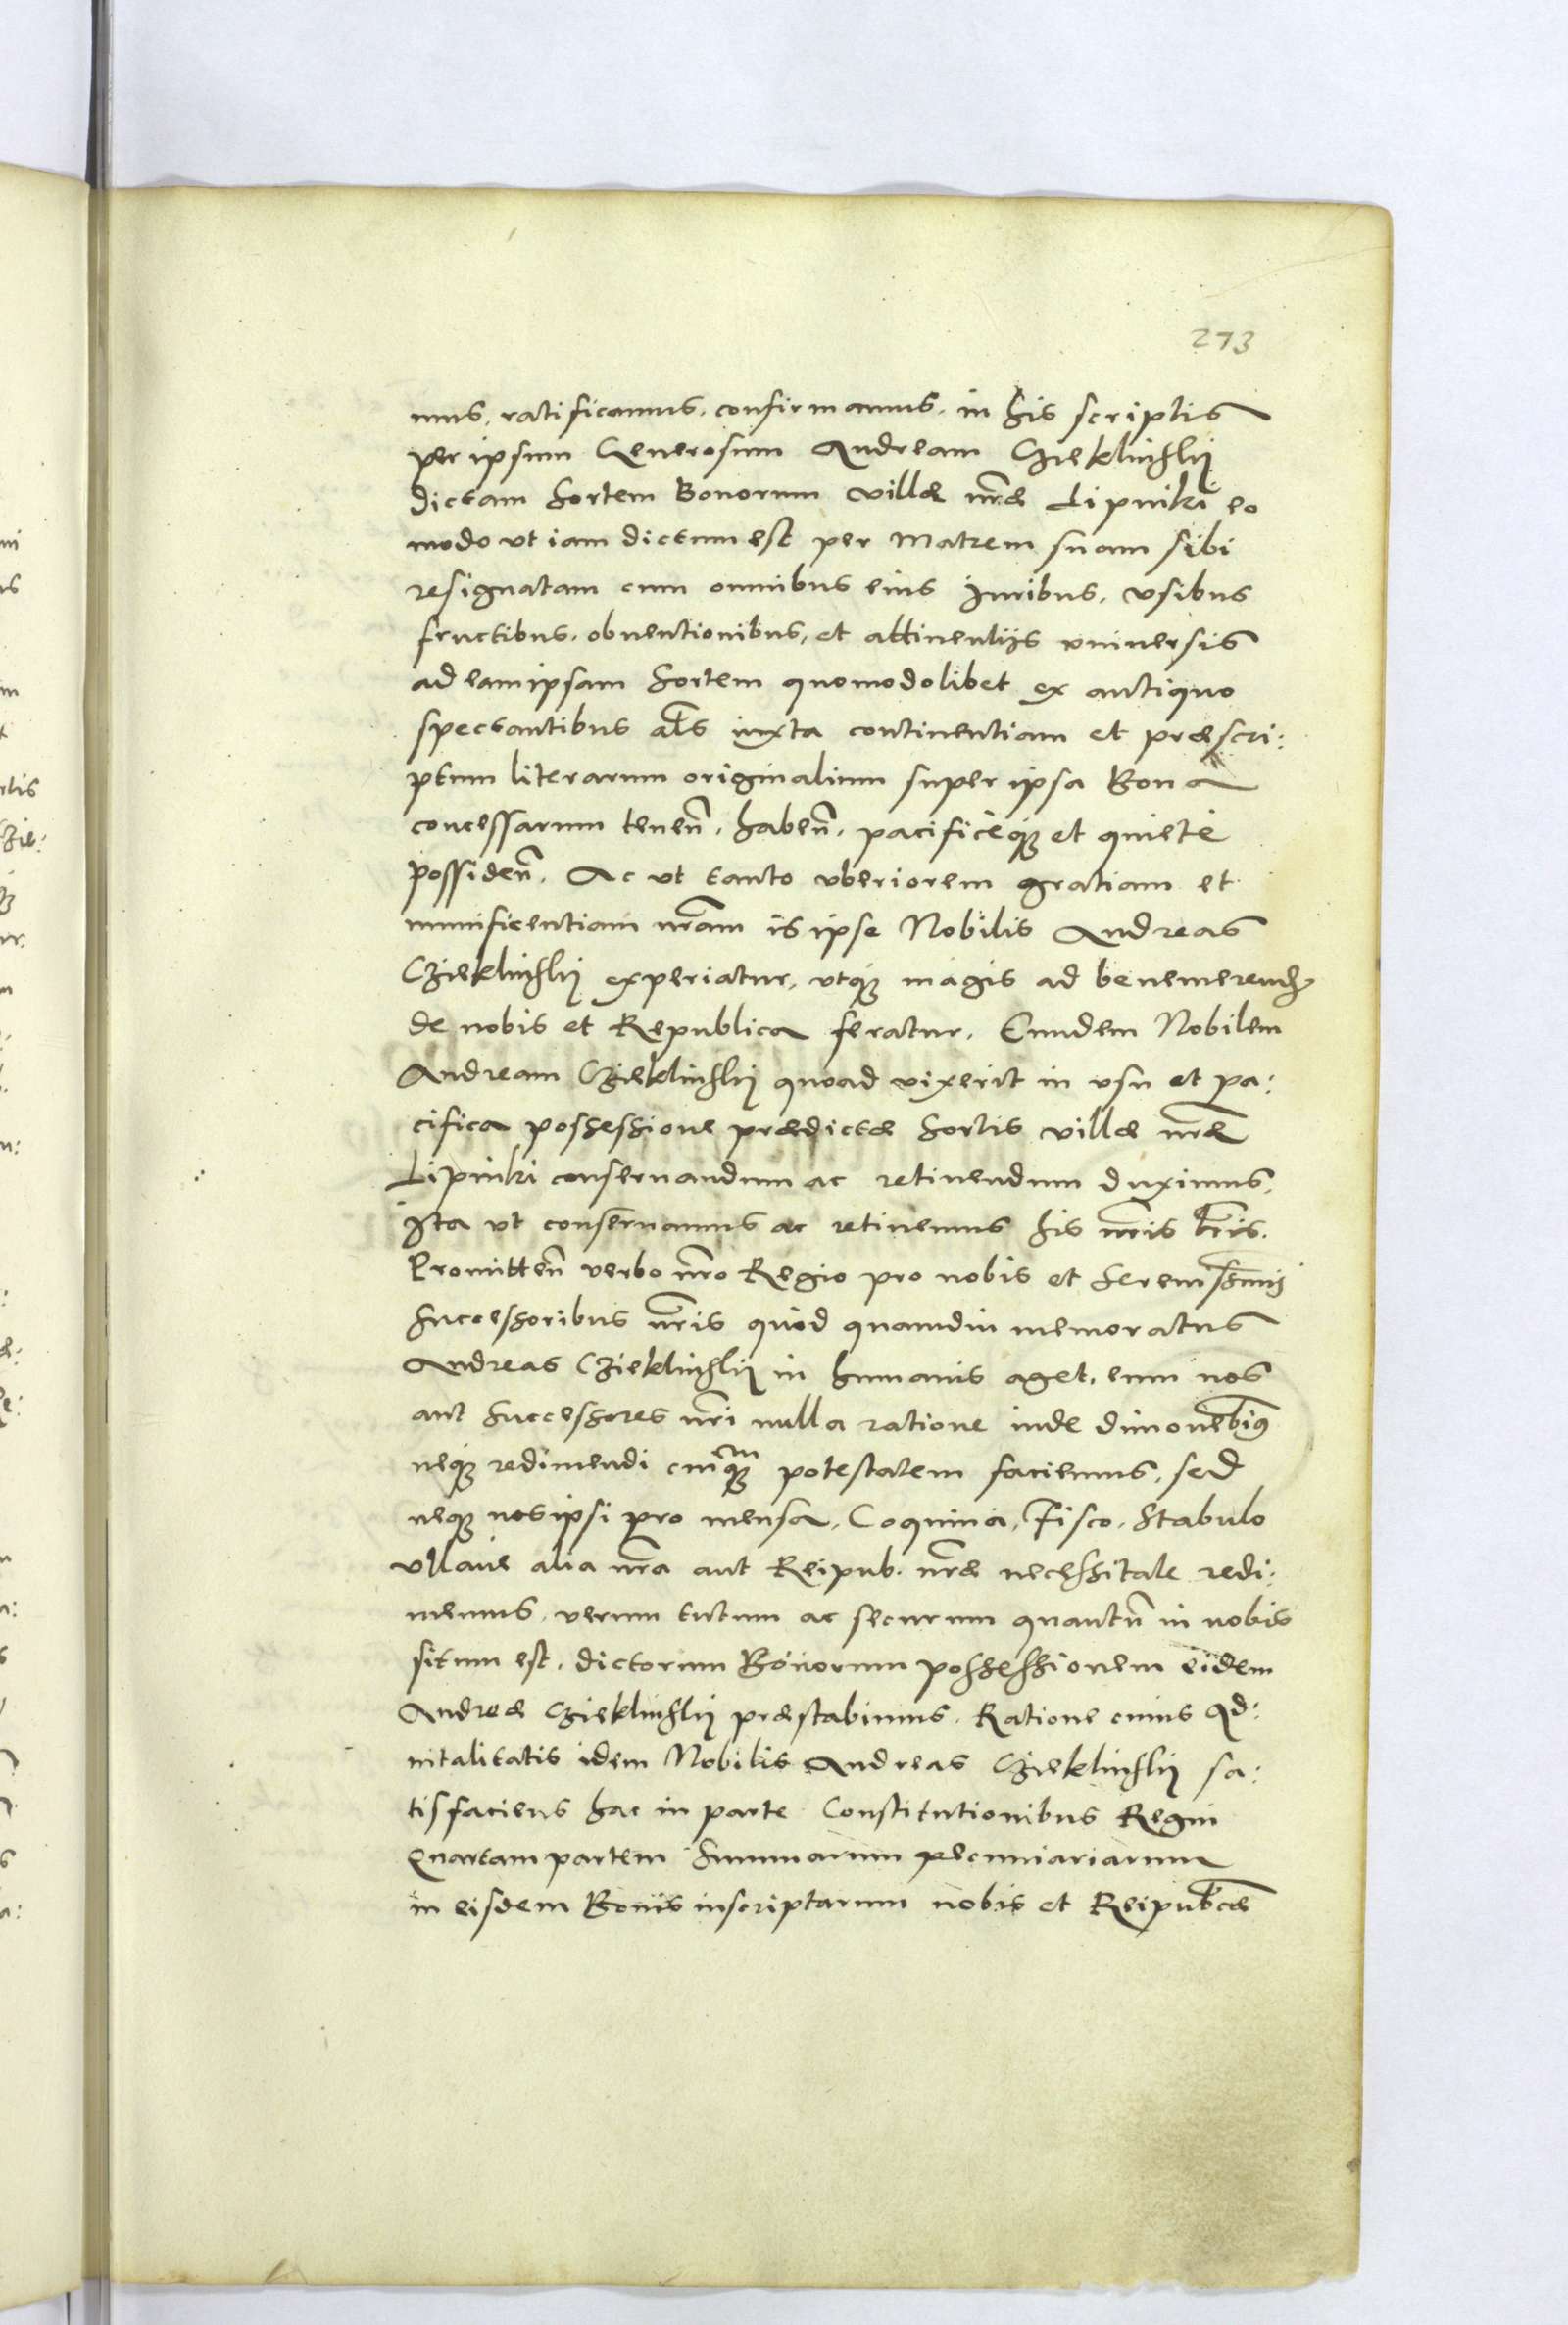 273
mus, ratificamus, confirmamus, in his scriptis
per ipsum Generosum Andream Czieklinßkij
dictam Sortem Bonorum villæ nr̃æ Lipniki eo
modo vt iam dictum est per Matrem suam sibi
resignatam cum omnibus eius Iuribus, vsibus
fructibus, obuentionibus, et attinentijs vniuersis
ad eam ipsam Sortem quomodolibet ex antiquo
spectantibus al̃s iuxta continentiam et præscri:
ptum literarum originalium super ipsa Bona
concessarum tenen̄, haben̄, pacificèq; et quietè
possiden̄. Ac vt tanto vberiorem gratiam et
munificentiam nr̃am is ipse Nobilis Andreas
Czieklinßkij experiatur, vtq; magis ad benemerend̄
de nobis et Republica feratur. Eundem Nobilem
Andream Czieklinßkij quoad vixerit in vsu et pa:
cifica possessione prædictæ Sortis villæ nr̃æ
Lipniki conseruandum ac retinendum duximus,
Ita vt conseruamus ac retinemus his nr̃is lr̃is.
Promitten̄ verbo nr̃o Regio pro nobis et Serenissimis
Successoribus nr̃is quòd quamdiu memoratus
Andreas Czieklinßkij in humanis aget, eum nos
aut Successores nr̃i nulla ratione inde dimouebimus
neq; redimendi cuiq;m potestatem faciemus, sed
neq; nos ipsi pro mensa, Coquina, Fisco, Stabulo
vllaue alia nr̃a aut Reipub. nr̃æ necessitate redi:
memus, verum tutum ac securum quantũ in nobis
situm est, dictorum Bonorum possessionem eidem
Andreæ Czieklinßkij præstabimus. Ratione cuius Ad:
uitalitatis idem Nobilis Andreas Czieklinßkij sa:
tisfaciens hac in parte Constitutionibus Regni
Quartam partem Summarum pecuniariarum
in eisdem Bonis inscriptarum nobis et Reipubcæ